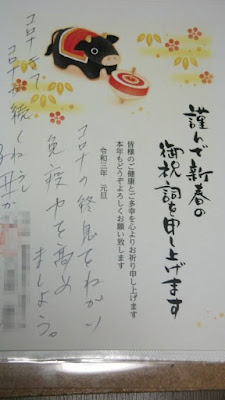 謹んで新春の
御祝詞を申し上げます
皆様のご健康とご多幸を心よりお祈り申し上げます
本年もどうぞよろしくお願い致します
令和三年 元旦
コロナの終息をねがい
免疫力を高め
ましょう。
コロナきて
コロナが続くわうし